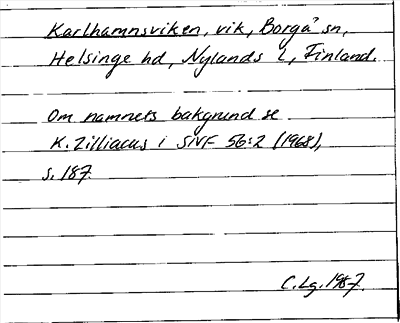 Karlhamnsviken, vik, Borgå sn,
Helsinge hd, Nylands l, Finland.
Om namnets bakgrund se
K. Zilliacus i SNF 56:2 (1968),
s. 187.
C. Lg. 1987.